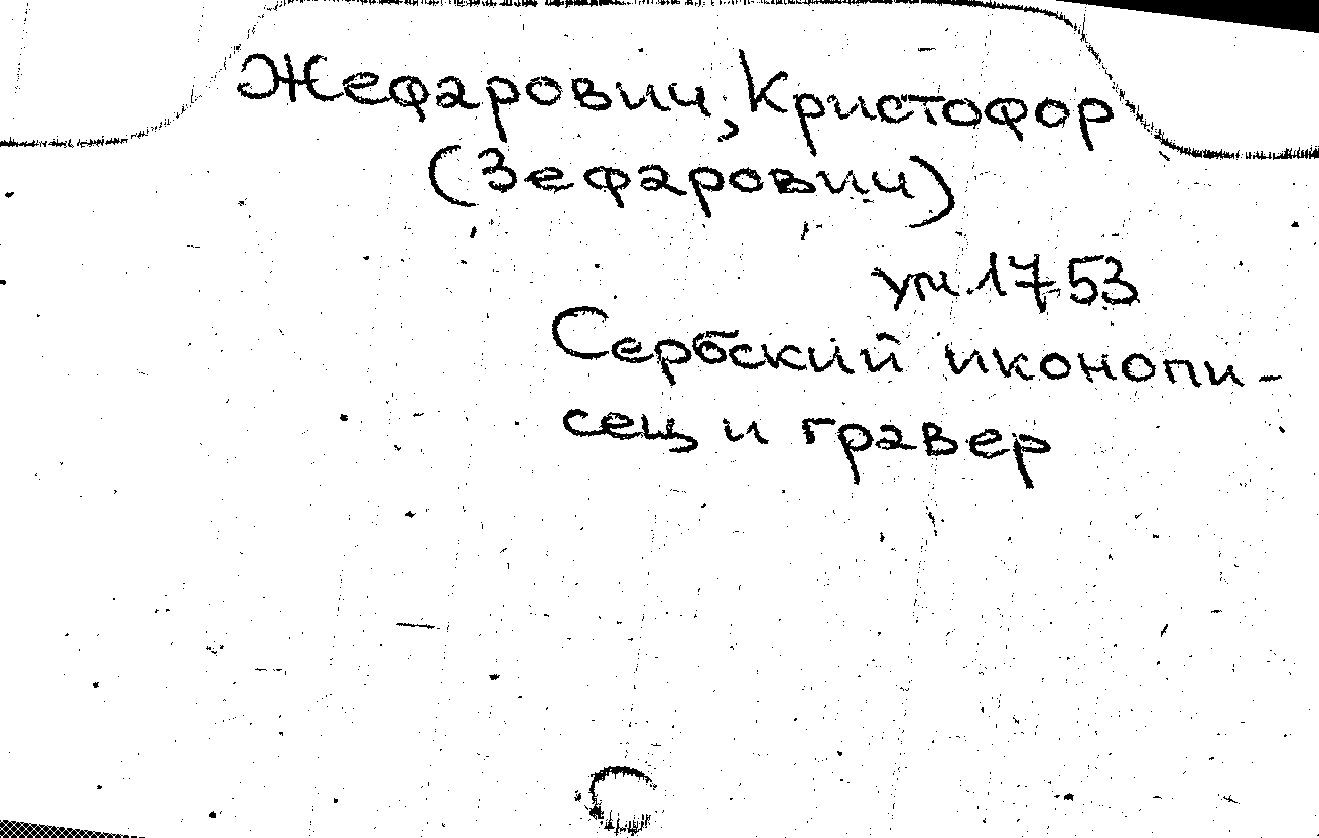 Жефарович, Кристофор
(Зефарович)
ум. 1753
Сербский иконопи-
сец и гравер